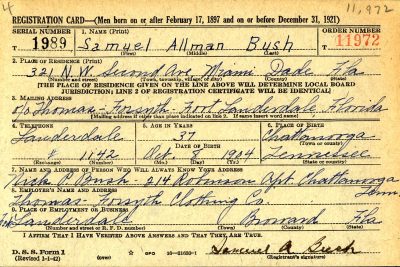 4
11,972
REGISTRATION CARD—(Men born on or after February 17, 1897 and on or before December 31, 1921)
SERIAL NUMBER 1. NAME (Print) ORDER NUMBER
T 1989 Samuel Allman Bush T 11972
(First) (Middle) (Last)
2. PLACE OF RESIDENCE (Print)
321 N.W. Second Ave Miami Dade Fla
(Number and street) (Town, township, village, or city) (County) (State)
[THE PLACE OF RESIDENCE GIVEN ON THE LINE ABOVE WILL DETERMINE LOCAL BOARD
JURISDICTION; LINE 2 OF REGISTRATION CERTIFICATE WILL BE IDENTICAL]
3. MAILING ADDRESS
c/o Thomas-Forsyth-Fort Lauderdale Florida
[Mailing address if other than place indicated on line 2. If same insert word same]
4. TELEPHONE 5. AGE IN YEARS 6. PLACE OF BIRTH
Lauderdale 37 Chattanooga
DATE OF BIRTH (Town or county)
1142 1904 Tennessee
(Exchange) (Number) (Mo.) (Day) (Yr.) (State or country)
7. NAME AND ADDRESS OF PERSON WHO WILL ALWAYS KNOW YOUR ADDRESS
Bush - 214 Robinson Apt. Chattanooga
Tenn.
8. EMPLOYER'S NAME AND ADDRESS
Thomas-Forsyth Clothing Co.
9. PLACE OF EMPLOYMENT OR BUSINESS
Lauderdale Broward Fla
(Number and street or R. F. D. number) (Town) (County) (State)
I AFFIRM THAT I HAVE VERIFIED ABOVE ANSWERS AND THAT THEY ARE TRUE.
D. S. S. Form 1 Samuel A Bush
(Revised 1-1-42) (Registrant's signature)